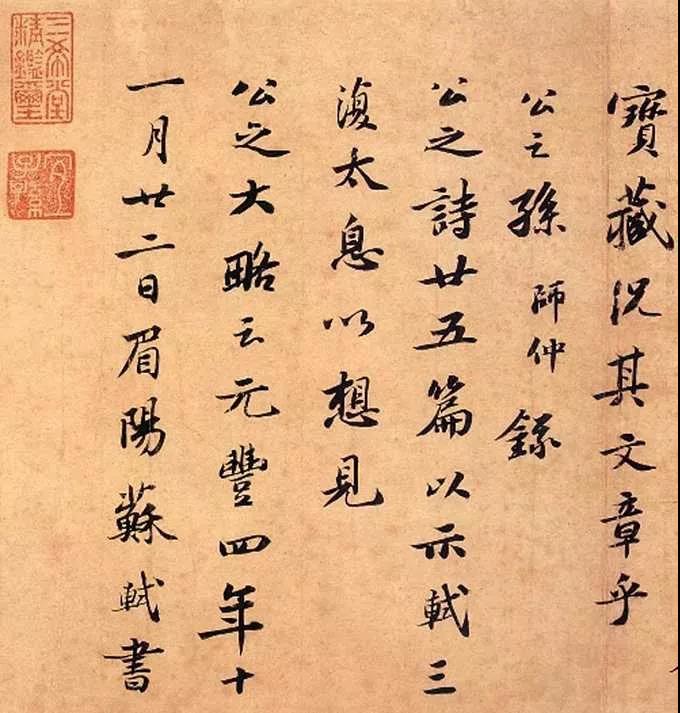 寶藏況其文章乎
公之孫師仲錄
公之詩廿五篇以示軾三
復太息以想見
公之大略云元豐四年十
一月廿二日眉陽蘇軾書
三希堂
精鑑璽
宜子孫